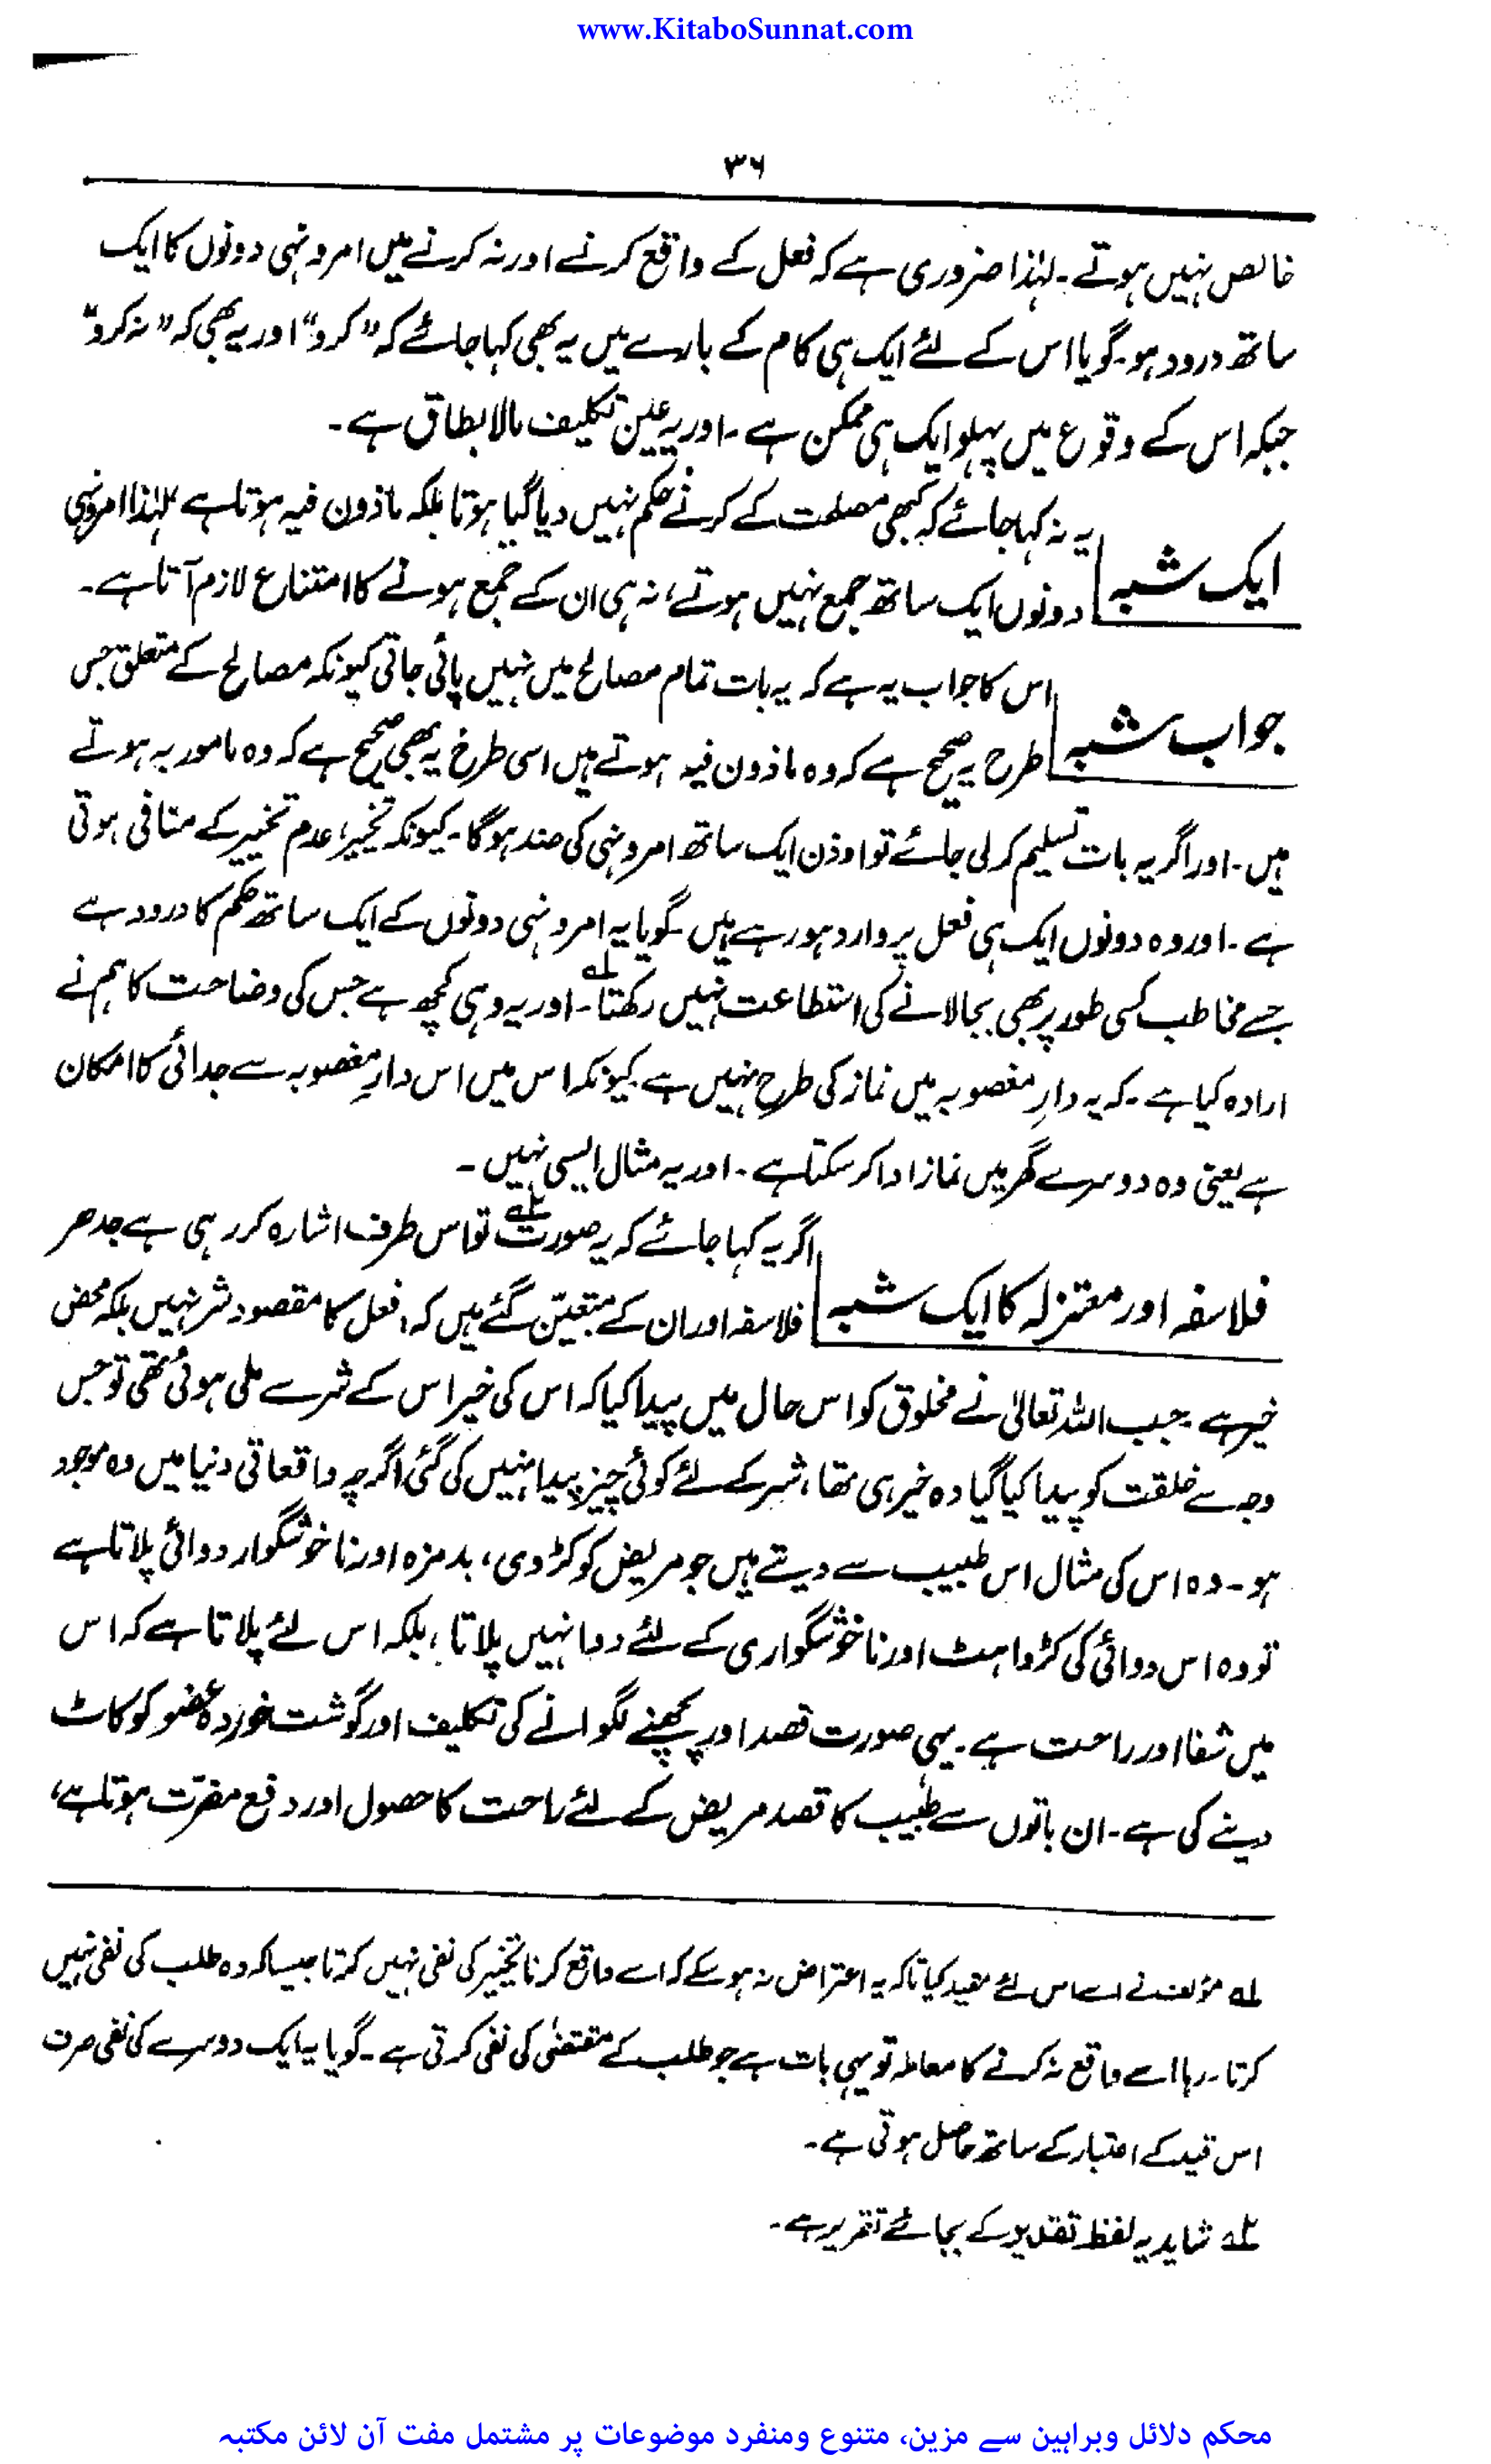 www.KitaboSunnat.com
۳۶
خالص نہیں ہوتے۔ لہٰذا ضروری ہے کہ فعل کے واقع کرنے اور نہ کرنے میں امر و نہی دونوں کا ایک
ساتھ ورود ہو۔ گویا اس کے لئے ایک ہی کام کے بارے میں یہ بھی کہا جائے کہ ”کرو“ اور یہ بھی کہ ”نہ کرو“
جبکہ اس کے وقوع میں پہلو ایک ہی ممکن ہے۔ اور یہ عین تکلیف مالا یطاق ہے۔
ایک شبہ
یہ نہ کہا جائے کہ کبھی مصلحت کے کرنے حکم نہیں دیا گیا ہوتا بلکہ ماذون فیہ ہوتا ہے لہٰذا امر و نہی
دونوں ایک ساتھ جمع نہیں ہوتے، نہ ہی ان کے جمع ہونے کا امتناع لازم آتا ہے۔
جواب شبہ
اس کا جواب یہ ہے کہ یہ بات تمام مصالح میں نہیں پائی جاتی کیونکہ مصالح کے متعلق جس
طرح یہ صحیح ہے کہ وہ ماذون فیہ ہوتے ہیں اسی طرح یہ بھی صحیح ہے کہ وہ مامور بہ ہوتے
ہیں۔ اور اگر یہ بات تسلیم کر لی جائے تو اذن ایک ساتھ امر و نہی کی ضد ہوگا۔ کیونکہ تخییر، عدم تخییر کے منافی ہوتی
ہے۔ اور وہ دونوں ایک ہی فعل پر وارد ہو رہے ہیں۔ گویا یہ امر و نہی دونوں کے ایک ساتھ حکم کا ورود ہے
جسے مخاطب کسی طور پر بھی بجا لانے کی استطاعت نہیں رکھتا۔ ؎۱ اور یہ وہی کچھ ہے جس کی وضاحت کا ہم نے
ارادہ کیا ہے۔ کہ یہ دارِ مغصوبہ میں نماز کی طرح نہیں ہے کیونکہ اس میں اس دارِ مغصوبہ سے جدائی کا امکان
ہے یعنی وہ دوسرے گھر میں نماز ادا کر سکتا ہے۔ اور یہ مثال ایسی نہیں۔
فلاسفہ اور معتزلہ کا ایک شبہ
اگر یہ کہا جائے کہ یہ صورت ؎۲ تو اس طرف اشارہ کر رہی ہے جدھر
فلاسفہ اور ان کے متبعین گئے ہیں کہ، فعل کا مقصود شر نہیں بلکہ محض
خیر ہے۔ جب اللہ تعالیٰ نے مخلوق کو اس حال میں پیدا کیا کہ اس کی خیر اس کے شر سے ملی ہوئی تھی تو جس
وجہ سے خلقت کو پیدا کیا گیا وہ خیر ہی تھا، شر کے لئے کوئی چیز پیدا نہیں کی گئی اگرچہ واقعاتی دنیا میں وہ موجود
ہو۔ وہ اس کی مثال اس طبیب سے دیتے ہیں جو مریض کو کڑوی، بدمزہ اور ناخوشگوار دوائی پلاتا ہے
تو وہ اس دوائی کی کڑواہٹ اور ناخوشگواری کے لئے دوا نہیں پلاتا، بلکہ اس لئے پلاتا ہے کہ اس
میں شفا اور راحت ہے۔ یہی صورت فصد اور پچھنے لگوانے کی تکلیف اور گوشت خوردہ عضو کو کاٹ
دینے کی ہے۔ ان باتوں سے طبیب کا قصد مریض کے لئے راحت کا حصول اور دفع مضرّت ہوتا ہے،
؎۱ مؤلف نے اسے اس لئے مقید کیا تاکہ یہ اعتراض نہ ہو سکے کہ اسے واقع کرنا تخییر کی نفی نہیں کرتا جیسا کہ وہ طلب کی نفی نہیں
کرتا۔ رہا اسے واقع نہ کرنے کا معاملہ تو یہی بات ہے جو طلب کے مقتضیٰ کی نفی کرتی ہے۔ گویا یہ ایک دوسرے کی نفی صرف
اس قید کے اعتبار کے ساتھ حاصل ہوتی ہے۔
؎۲ شاید یہ لفظ تقدیر کے بجائے تقریر ہے۔
محکم دلائل وبراہین سے مزین، متنوع ومنفرد موضوعات پر مشتمل مفت آن لائن مکتبہ